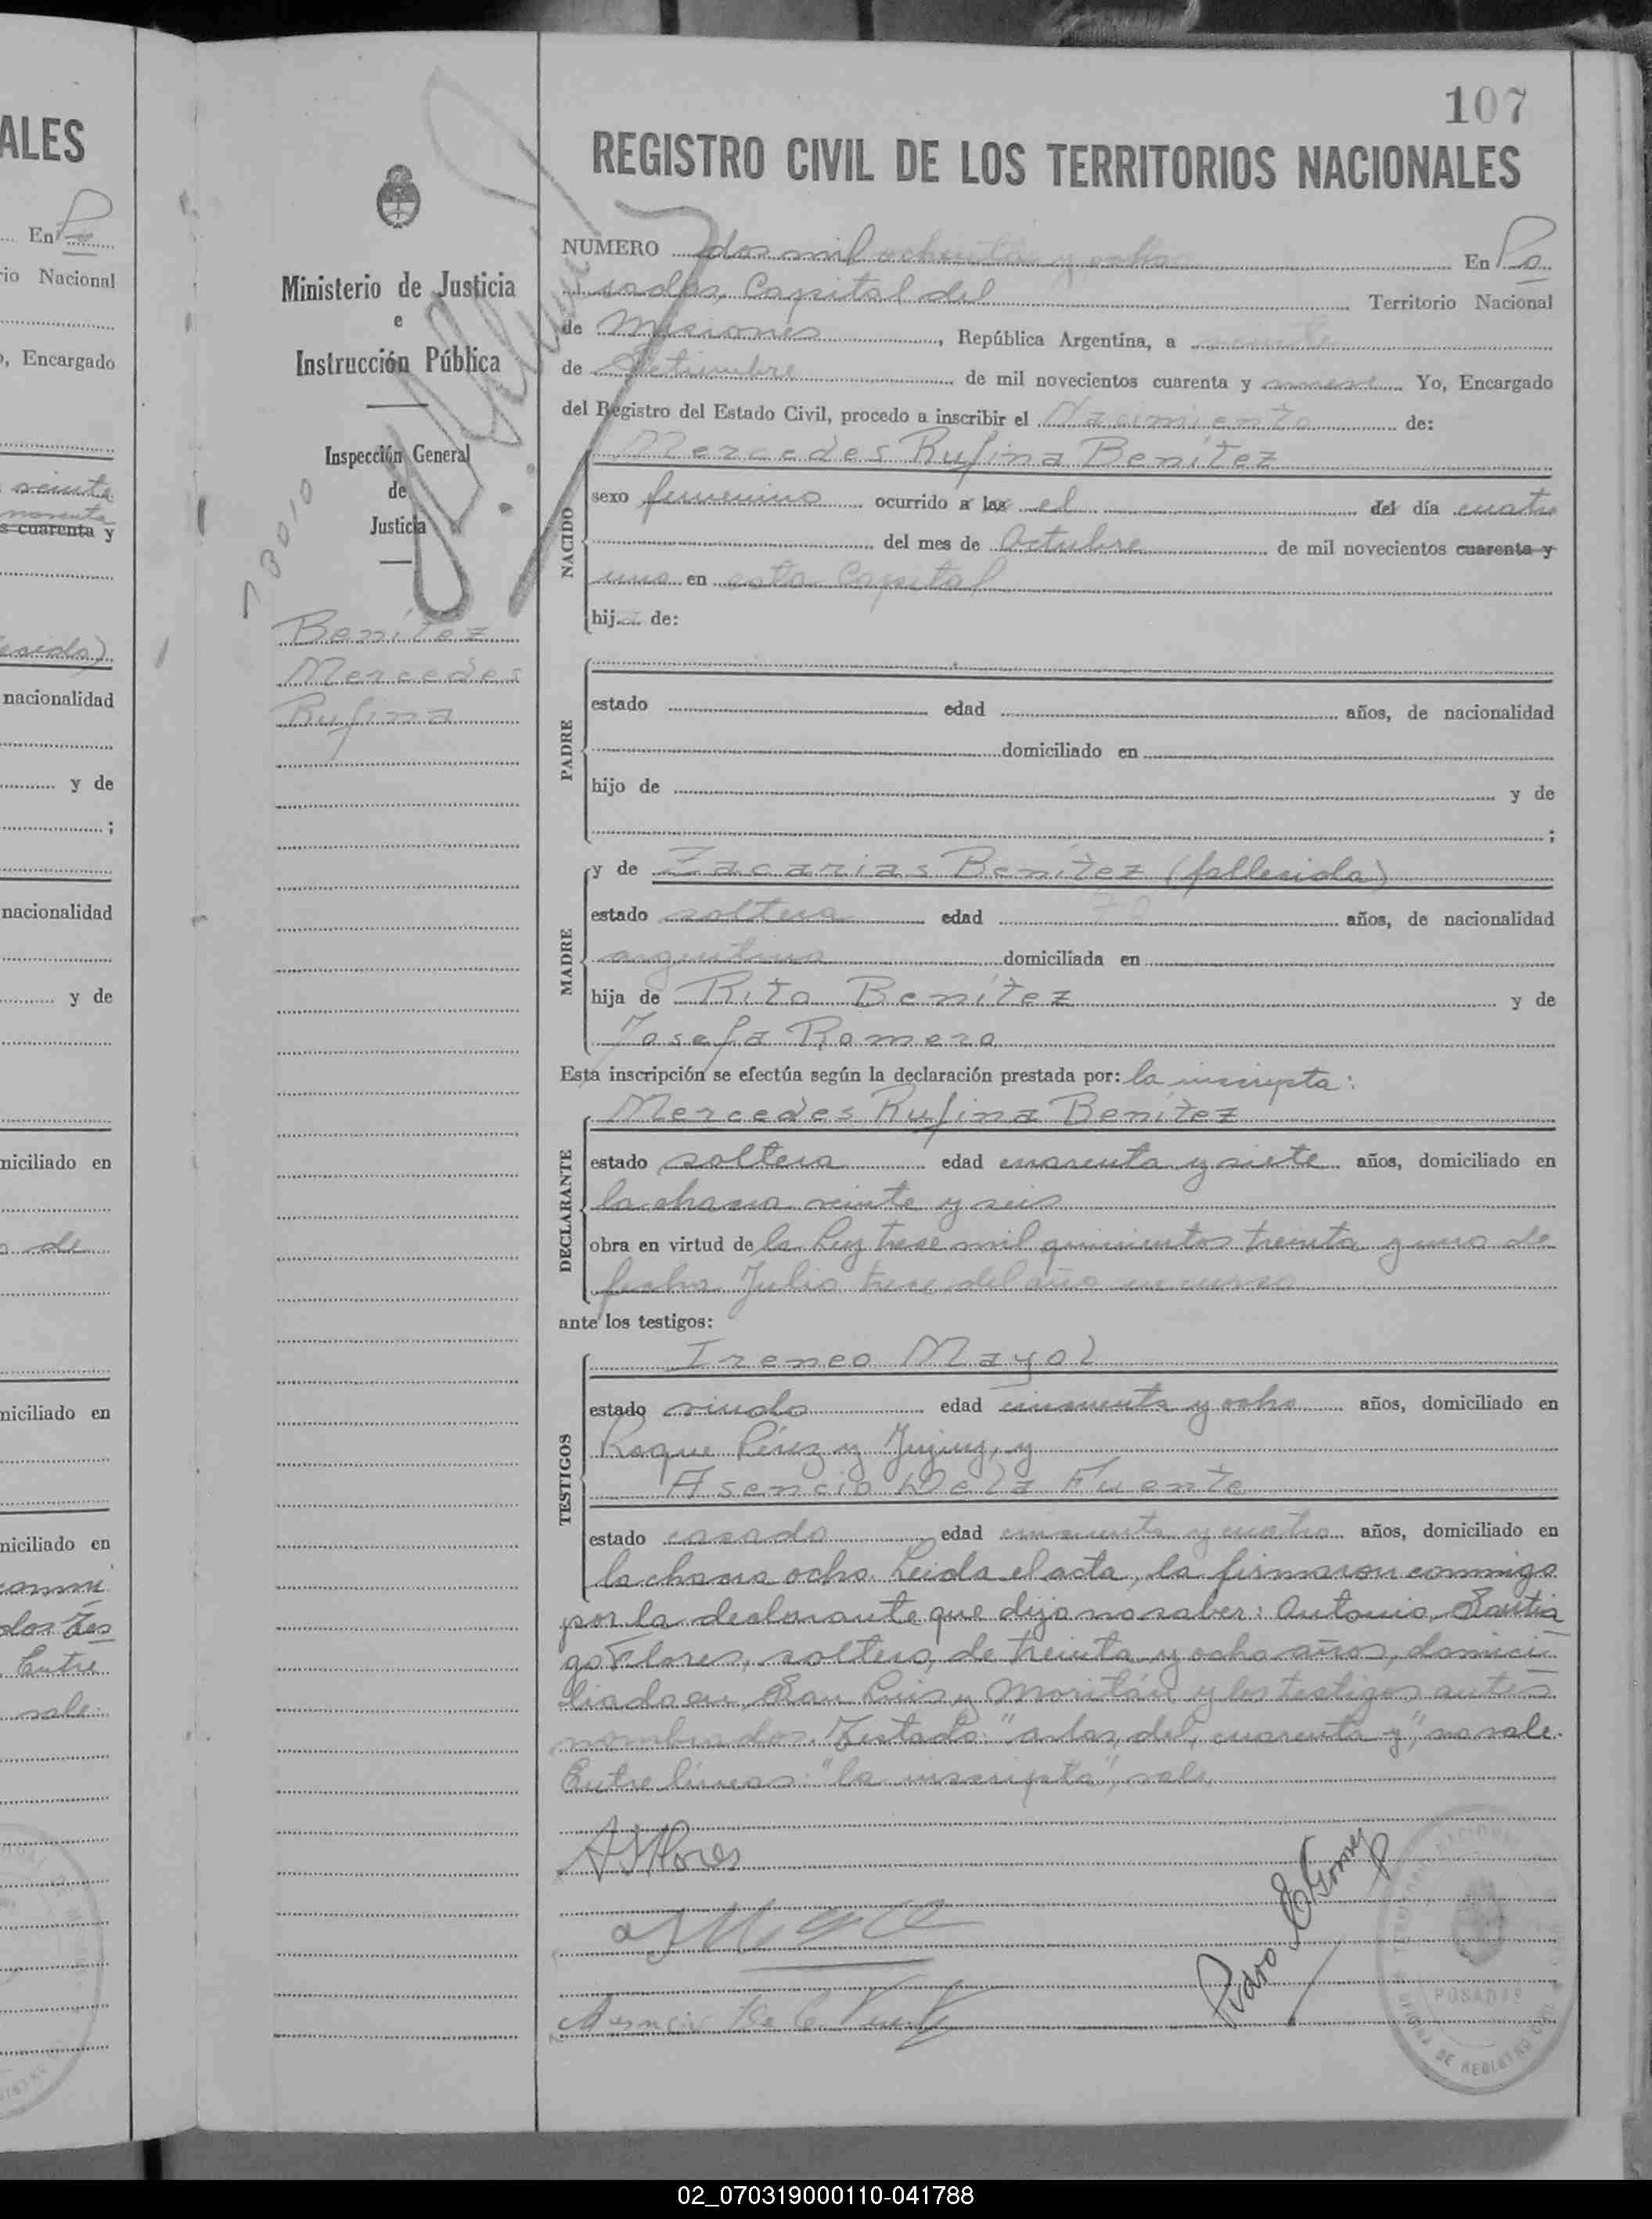 107
REGISTRO CIVIL DE LOS TERRITORIOS NACIONALES
Ministerio de Justicia
e
Instrucción Pública
Inspección General
de
Justicia
Benítez
Mercedes
Rufina
NUMERO dos mil ochenta y ocho En Po
sadas, Capital del Territorio Nacional
de Misiones, República Argentina, a veinte
de Setiembre de mil novecientos cuarenta y nueve Yo, Encargado
del Registro del Estado Civil, procedo a inscribir el Nacimiento de:
Mercedes Rufina Benítez
NACIDO
sexo femenino ocurrido a las el del día cuatro
del mes de Octubre de mil novecientos cuarenta y
uno en esta Capital
hija de:
PADRE
estado edad años, de nacionalidad
domiciliado en
hijo de y de
;
MADRE
y de Zacarias Benítez (fallecida)
estado soltera edad años, de nacionalidad
argentina domiciliada en
hija de Rito Benítez y de
Josefa Romero
Esta inscripción se efectúa según la declaración prestada por: la inscripta:
Mercedes Rufina Benítez
DECLARANTE
estado soltera edad cuarenta y siete años, domiciliado en
la chacra veinte y seis
obra en virtud de la Ley trece mil quinientos treinta y uno de
fecha Julio trece del año en curso
ante los testigos:
Ireneo Mayol
TESTIGOS
estado viudo edad cincuenta y ocho años, domiciliado en
Roque Pérez y Jujuy, y
Asencio De la Fuente
estado casado edad cincuenta y cuatro años, domiciliado en
la chacra ocho. Leida el acta, la firmaron conmigo
por la declarante que dijo no saber: Antonio Santia
go Flores, soltero, de treinta y ocho años, domici
liado en San Luis y Moritán y los testigos antes
nombrados. Testado: "a las, del, cuarenta y", no vale.
Entre líneas: "la inscripta", vale.
A S Flores
Asencio De la Fuente
POSADAS
OFICINA DE REGISTRO CIVIL
ALES
En Po
rio Nacional
, Encargado
veinte
noventa
s cuarenta y
nacionalidad
y de
;
nacionalidad
y de
niciliado en
de
niciliado en
niciliado en
Entre
vale.
02_070319000110-041788